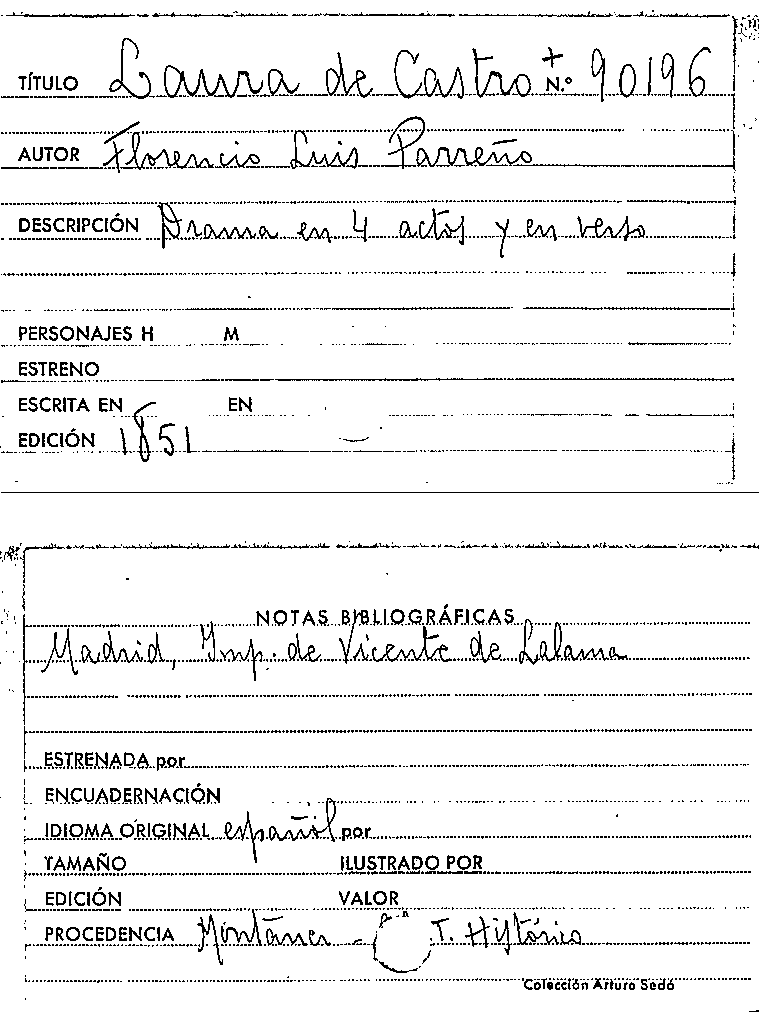 TÍTULO Laura de Castro + N.º 90196
AUTOR Florencio Luis Parreño
DESCRIPCIÓN Drama en 4 actos y en verso
PERSONAJES H M
ESTRENO
ESCRITA EN EN
EDICIÓN 1851
NOTAS BIBLIOGRÁFICAS
Madrid, Imp. de Vicente de Lalama
ESTRENADA por
ENCUADERNACIÓN
IDIOMA ORIGINAL español por
TAMAÑO ILUSTRADO POR
EDICIÓN VALOR
PROCEDENCIA Montaner - T. Histórico
Colección Arturo Sedó